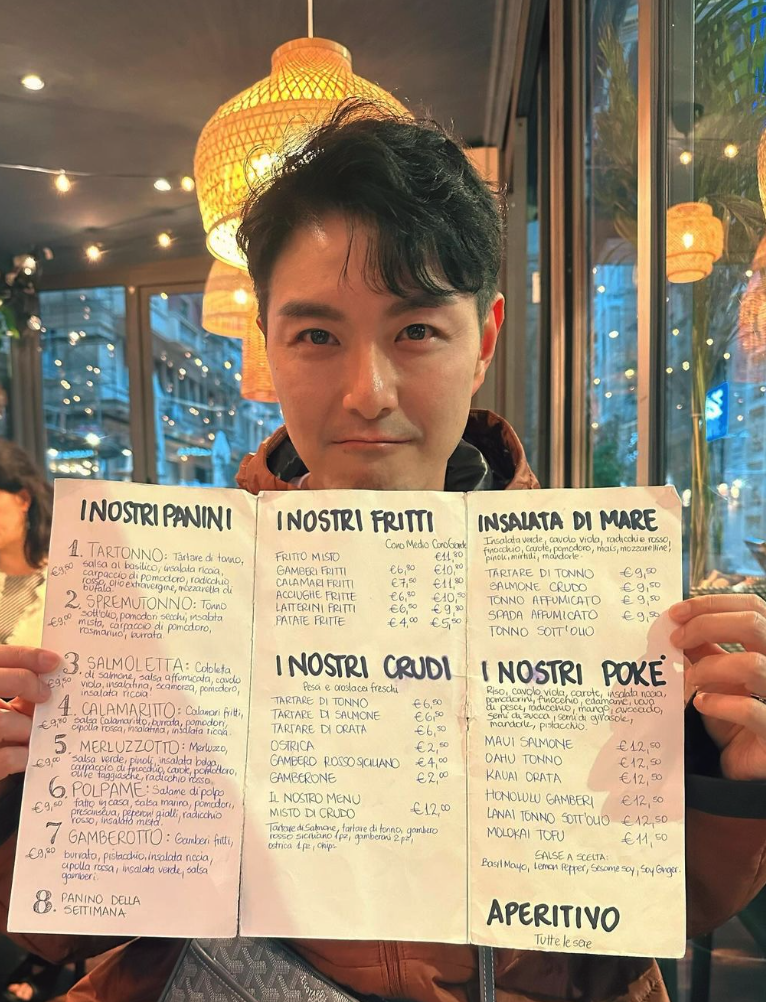 I NOSTRI PANINI
1. TARTONNO: Tartare di tonno,
salsa al basilico, insalata riccia,
€9,50
carpaccio di pomodoro, radicchio
rosso, olio extravergine, mozzarella di
bufala.
2. SPREMUTONNO: Tonno
€9,00
sott'olio, pomodori secchi, insalata
mista, carpaccio di pomodoro,
rosmarino, burrata.
3. SALMOLETTA: Cotoletta
di salmone, salsa affumicata, cavolo
viola, insalatina, scamorza, pomodoro,
insalata riccia
4. CALAMARITTO: Calamari fritti,
salsa Calamaritto, burrata, pomodori,
cipolla rossa, insalatina, insalata riccia.
5. MERLUZZOTTO: Merluzzo,
salsa verde, pinoli, insalata belga,
carpaccio di finocchio, carote, pomodoro,
olive taggiasche, radicchio rosso.
6. POLPAME: Salame di polpo
fatto in casa, salsa marina, pomodori,
peperoni gialli, radicchio
rosso, insalata mista.
7 GAMBEROTTO: Gamberi fritti,
burrata, pistacchio, insalata riccia,
cipolla rossa, insalata verde, salsa
gamberi.
8. PANINO DELLA
SETTIMANA
I NOSTRI FRITTI
Cono Medio Cono Grande
FRITTO MISTO €11,80
GAMBERI FRITTI €6,80 €10,80
CALAMARI FRITTI €7,50 €11,80
ACCIUGHE FRITTE €6,80 €10,50
LATTERINI FRITTI €6,50 €9,80
PATATE FRITTE €4,00 €5,50
I NOSTRI CRUDI
Pesce e crostacei freschi
TARTARE DI TONNO €6,50
TARTARE DI SALMONE €6,50
TARTARE DI ORATA €6,50
OSTRICA €2,50
GAMBERO ROSSO SICILIANO €4,00
GAMBERONE €2,00
IL NOSTRO MENU
MISTO DI CRUDO €12,00
Tartare di Salmone, tartare di tonno, gambero
rosso siciliano 1pz, gamberoni 2pz,
ostrica 1pz, chips
INSALATA DI MARE
Insalata verde, cavolo viola, radicchio rosso,
finocchio, carote, pomodoro, mais, mozzarelline,
pinoli, mirtilli, mandorle.
TARTARE DI TONNO €9,50
SALMONE CRUDO €9,50
TONNO AFFUMICATO €9,50
SPADA AFFUMICATO €9,50
TONNO SOTT'OLIO
I NOSTRI POKE'
Riso, cavolo viola, carote, insalata riccia,
pomodorini, finocchio, edamame, uova
di pesce, radicchio, mango, avocado,
semi di zucca, semi di girasole,
mandorle, pistacchio.
MAUI SALMONE €12,50
OAHU TONNO €12,50
KAUAI ORATA €12,50
HONOLULU GAMBERI €12,50
LANAI TONNO SOTT'OLIO €12,50
MOLOKAI TOFU €11,50
SALSE A SCELTA:
Basil Mayo, Lemon Pepper, Sesame soy, Soy Ginger.
APERITIVO
Tutte le sere